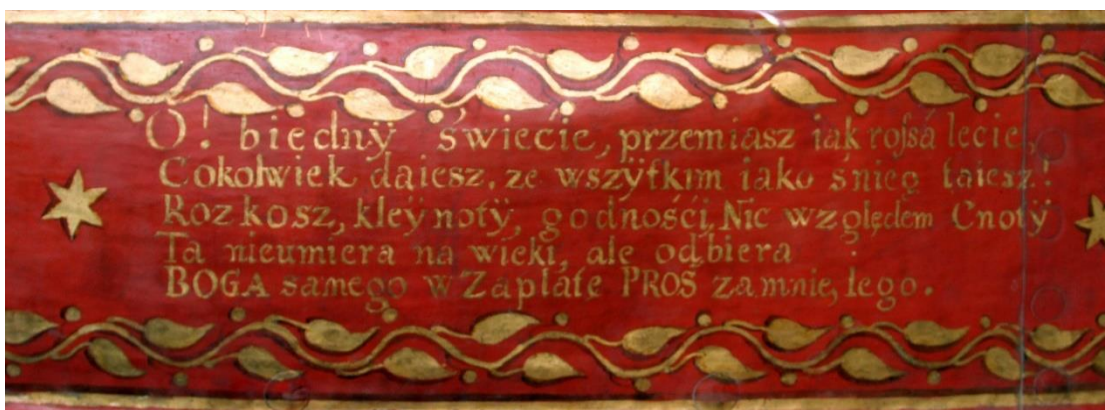 O! biedny świecie, przemiasz iak rossa lecie,
Cokolwiek daiesz, ze wszÿſtkim iako śnieg taiesz!
Rozkosz, kleÿnotÿ, godnośći, Nic względem Cnotÿ
Ta nieumiera na wieki, ale odbiera
BOGA samego w Zapłáte PROŚ zamnie, Iego.